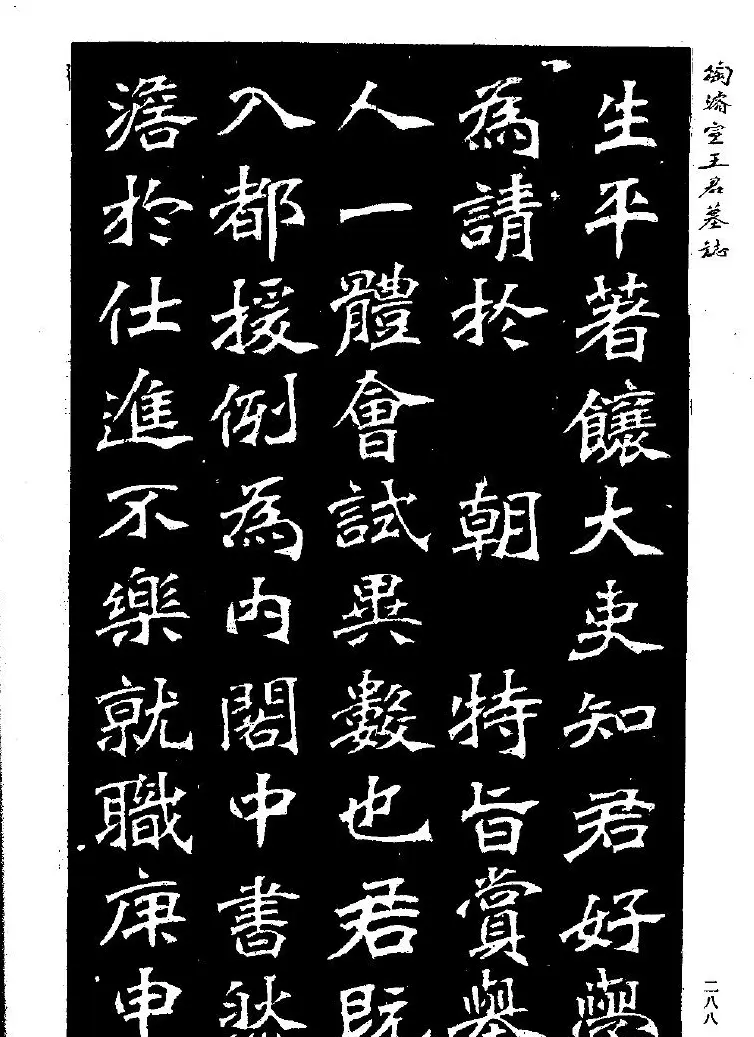 陶濬宣王君墓誌
生平著饟大吏知君好學
為請於　朝　特旨賞舉
人一體會試異數也君既
入都援例為内閣中書然
澹於仕進不樂就職庚申
二八八